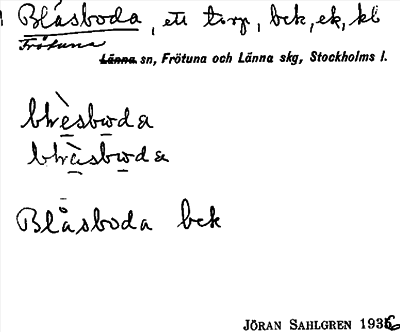 Blåsboda, ett torp, bck, ek, kl
Frötuna
Länna sn, Frötuna och Länna skg, Stockholms l.
blẁèsbωda
blẁàsbωda
Blåsboda bck
JÖRAN SAHLGREN 1936